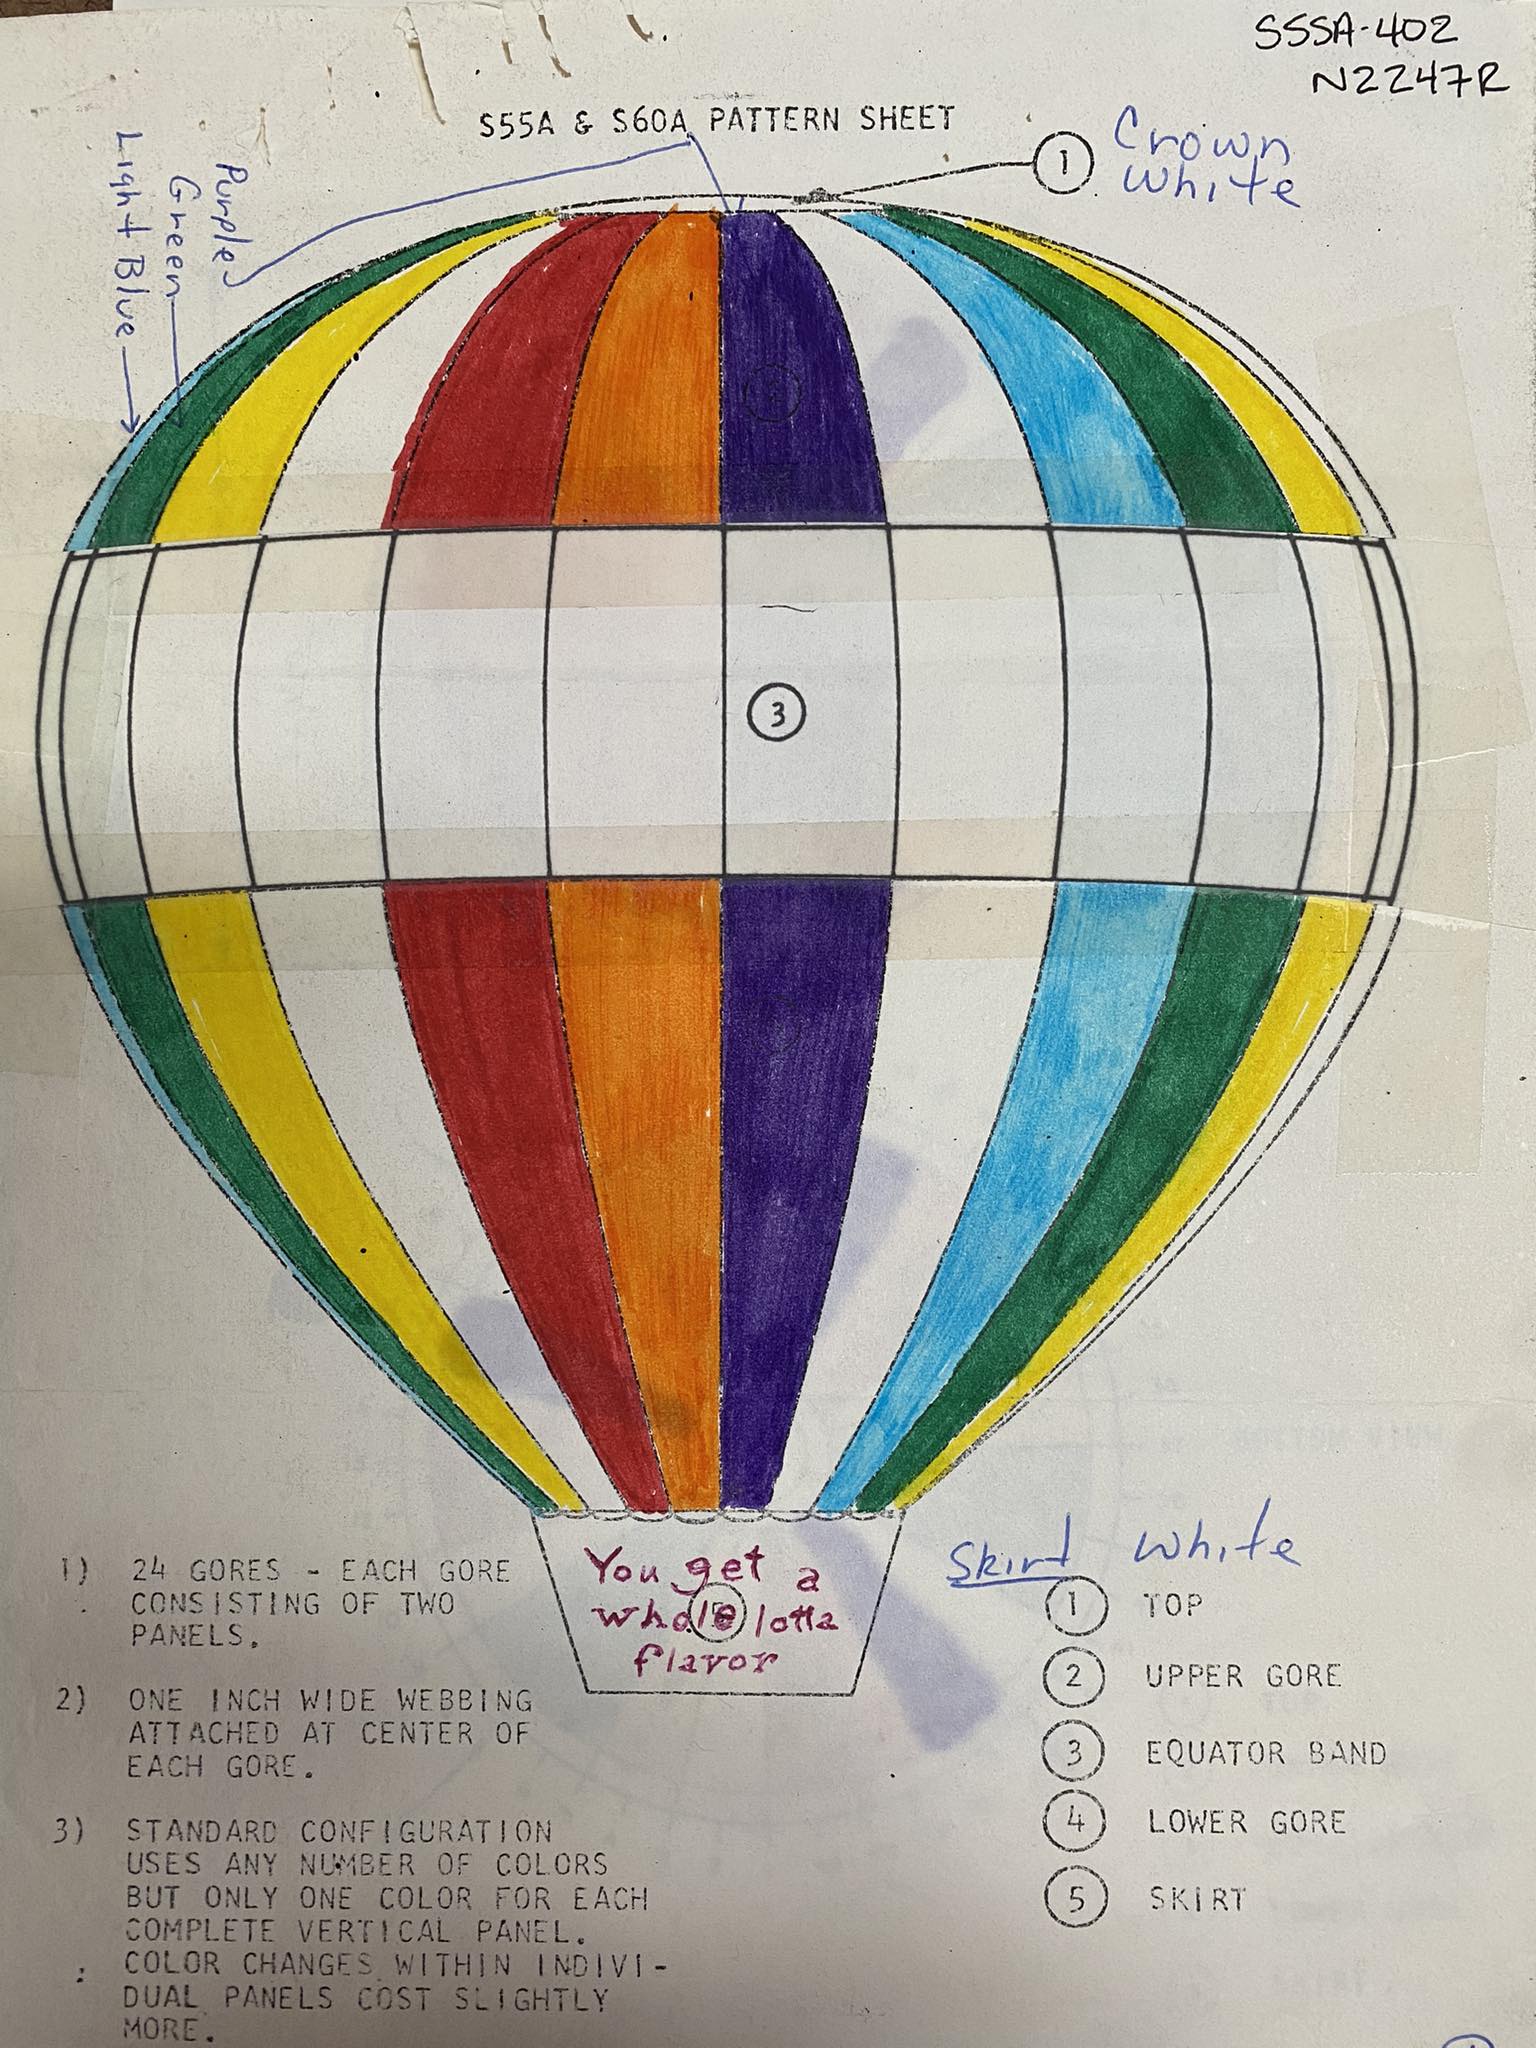 SSSA-402
N2247R
S55A & S60A PATTERN SHEET
1 Crown
White
Purple
Green
Light Blue
3
You get a
whole lotta
flavor
Skirt White
1) 24 GORES - EACH GORE
CONSISTING OF TWO
PANELS.
2) ONE INCH WIDE WEBBING
ATTACHED AT CENTER OF
EACH GORE.
3) STANDARD CONFIGURATION
USES ANY NUMBER OF COLORS
BUT ONLY ONE COLOR FOR EACH
COMPLETE VERTICAL PANEL.
COLOR CHANGES WITHIN INDIVI-
DUAL PANELS COST SLIGHTLY
MORE.
1 TOP
2 UPPER GORE
3 EQUATOR BAND
4 LOWER GORE
5 SKIRT